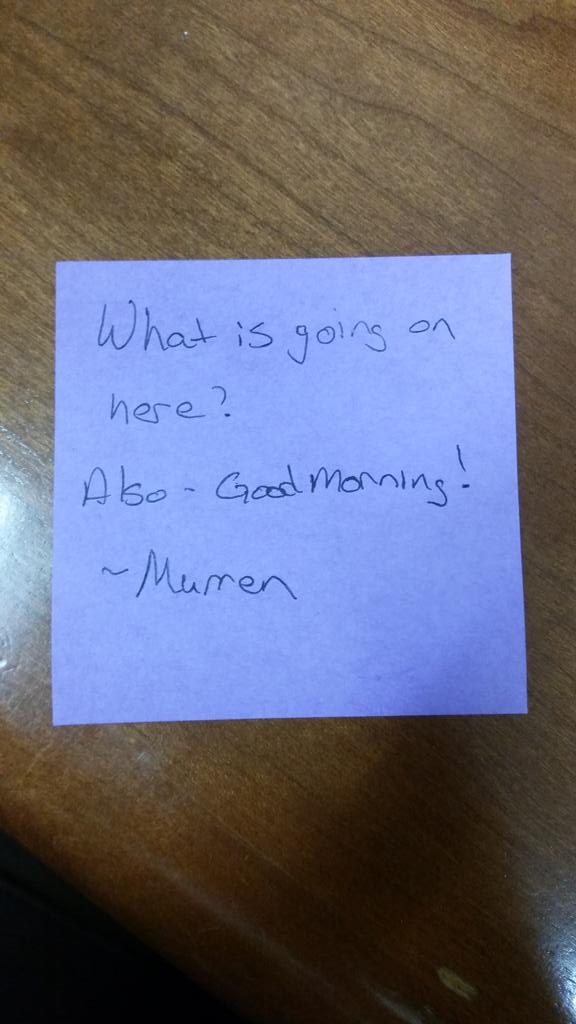 What is going on
here?
Also - Good Morning!
~ Mumen